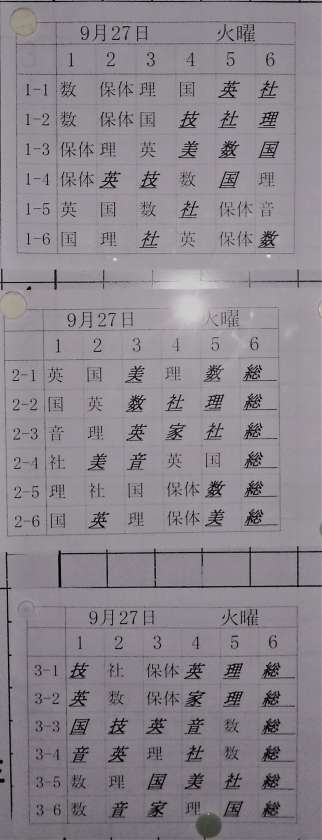 9月27日 火曜
1 2 3 4 5 6
1-1 数 保体 理 国 英 社
1-2 数 保体 国 技 社 理
1-3 保体 理 英 美 数 国
1-4 保体 英 技 数 国 理
1-5 英 国 数 社 保体 音
1-6 国 理 社 英 保体 数
9月27日 火曜
1 2 3 4 5 6
2-1 英 国 美 理 数 総
2-2 国 英 数 社 理 総
2-3 音 理 英 家 社 総
2-4 社 美 音 英 国 総
2-5 理 社 国 保体 数 総
2-6 国 英 理 保体 美 総
9月27日 火曜
1 2 3 4 5 6
3-1 技 社 保体 英 理 総
3-2 英 数 保体 家 理 総
3-3 国 技 英 音 数 総
3-4 音 英 理 社 数 総
3-5 数 理 国 美 社 総
3-6 数 音 家 理 国 総